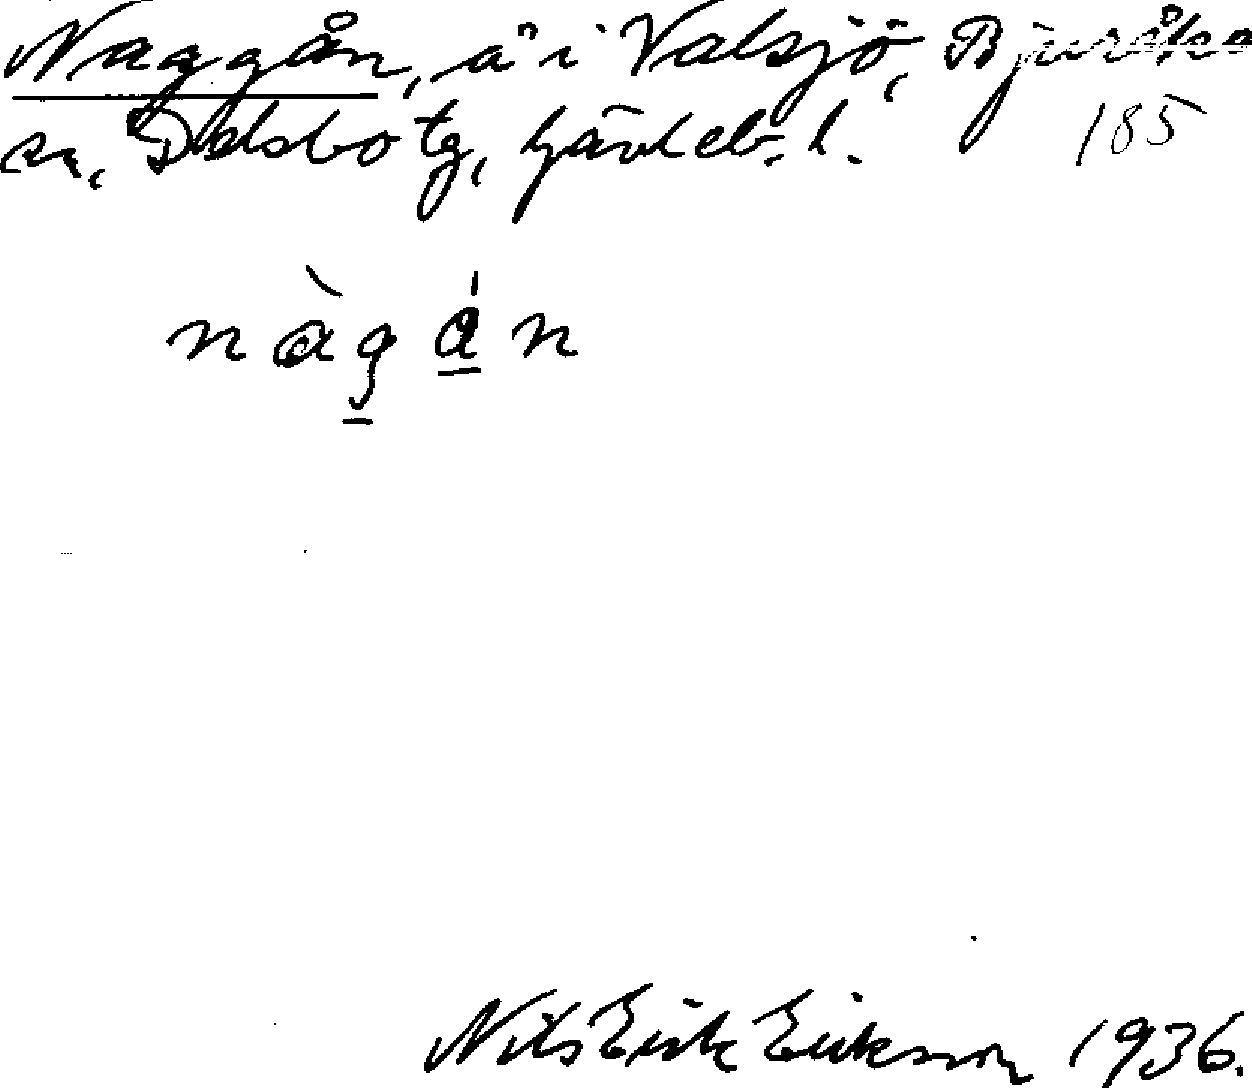 Naggån, å i Valsjö, Bjuråke
sn, Delsbo tg, Gävleb. l. 185
nàgán
Nils Erik Eriksson 1936.